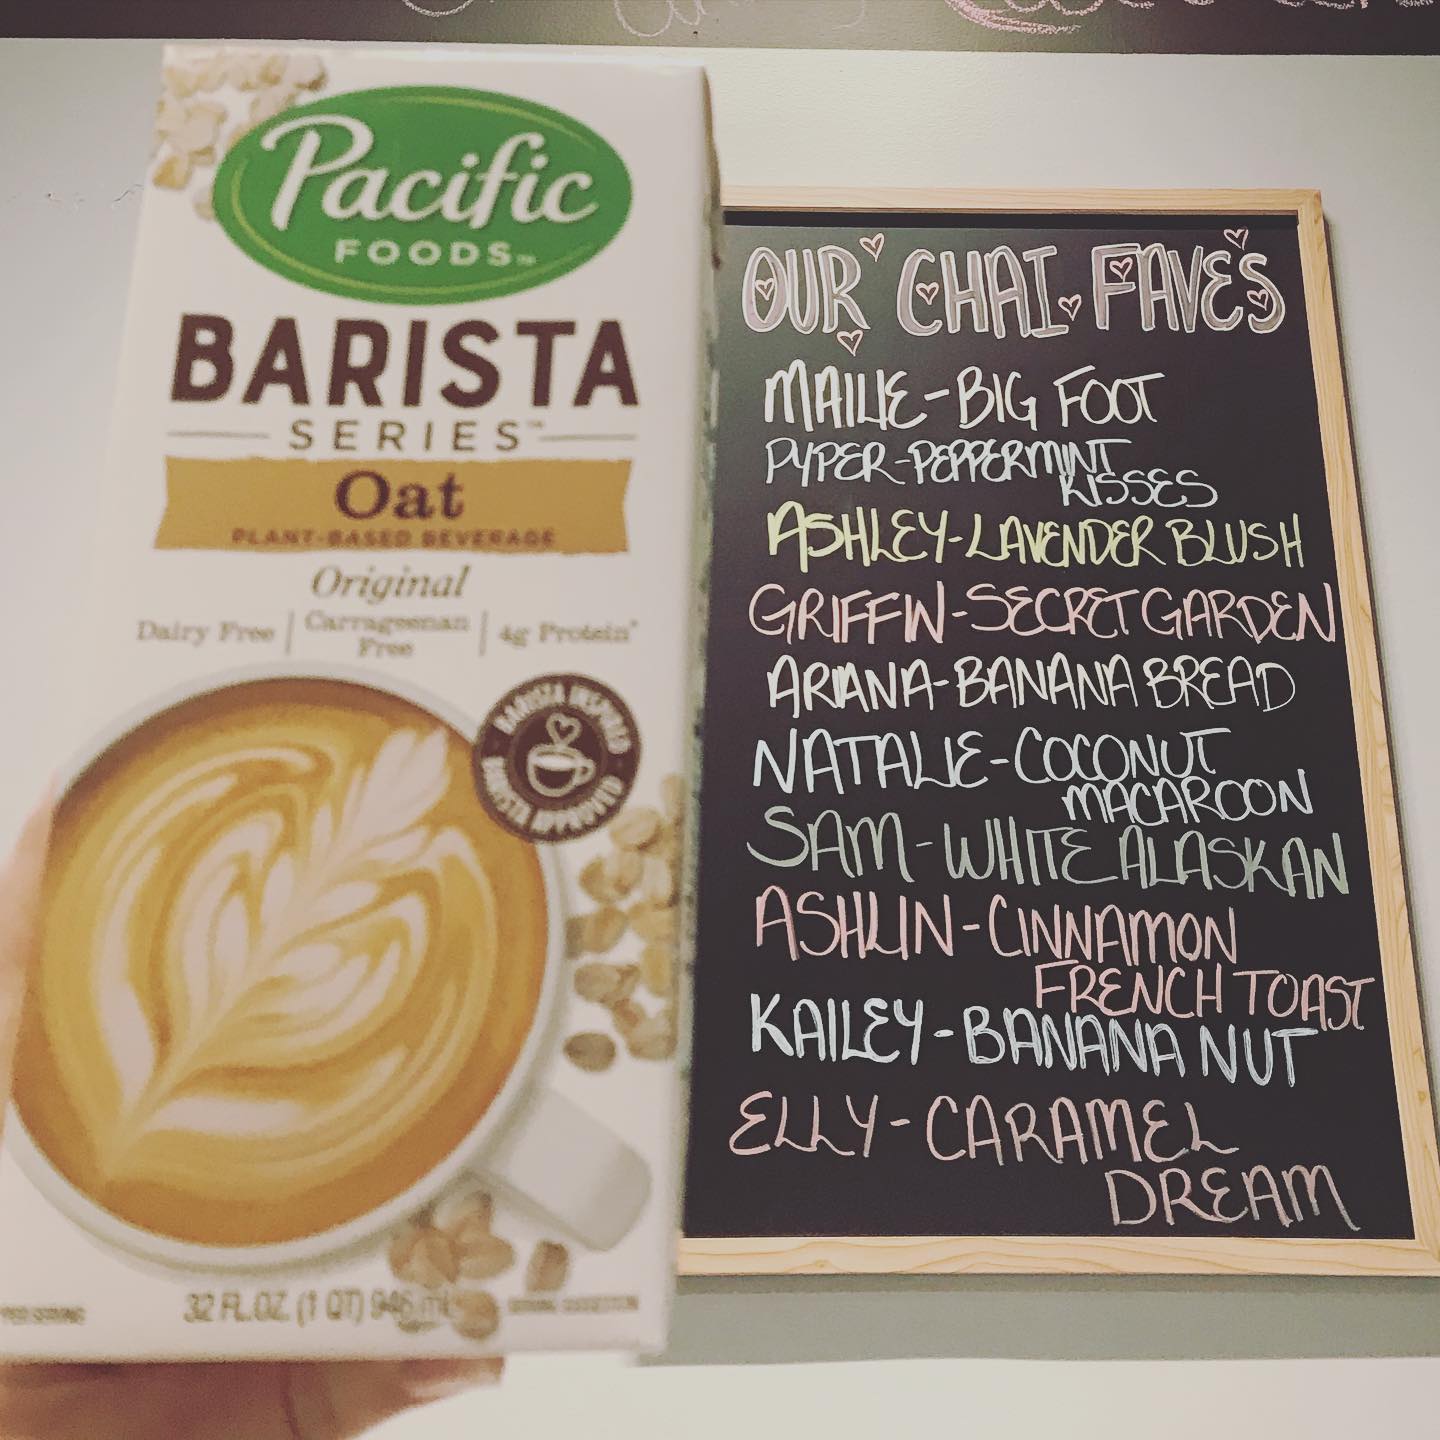 Pacific
FOODS™
BARISTA
SERIES™
Oat
PLANT-BASED BEVERAGE
Original
Dairy Free | Carrageenan Free | 4g Protein*
BARISTA INSPIRED
BARISTA APPROVED
32 FL.OZ. (1 QT) 946 mL
PER SERVING
OUR CHAI FAVES
MAILIE-BIG FOOT
PYPER-PEPPERMINT
KISSES
ASHLEY-LAVENDER BLUSH
GRIFFIN-SECRET GARDEN
ARIANA-BANANA BREAD
NATALIE-COCONUT
MACAROON
SAM-WHITE ALASKAN
ASHLIN-CINNAMON
FRENCH TOAST
KAILEY-BANANA NUT
ELLY-CARAMEL
DREAM